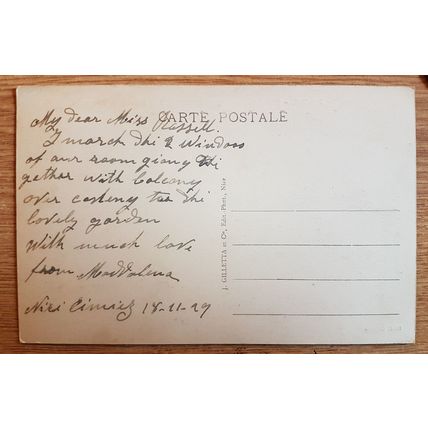 CARTE POSTALE
My dear Miss Russell.
I march dhi 2 Windoos
of our room giong thi
gether with balcony
over
lovely garden
With much love
from Maddalena
Cimiez 18-11-29
J. GILLETTA et Cie, Edit. Phot., Nice